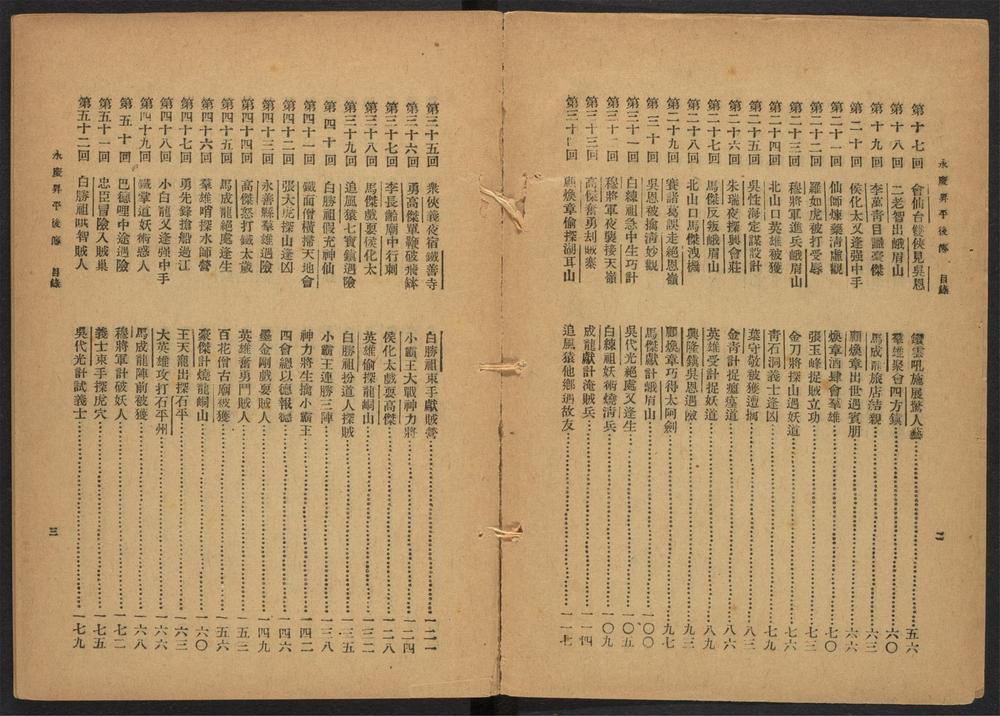 永慶昇平後傳　目錄
第十七回　會仙台雙俠見吳恩　鑽雲吼施展驚人藝……五六
第十八回　二老智出峨眉山　羣雄聚會四方鎮……六〇
第十九回　李萬青目識豪傑　馬成龍旅店結親……六三
第二十回　侯化太又逢強中手　顧煥章出世遇賓朋……六六
第二十一回　仙師煉藥清虛觀　煥章酒肆會羣雄……六九
第二十二回　羅如虎被打受辱　張玉峰捉賊立功……七三
第二十三回　穆將軍進兵峨眉山　金刀將探山遇妖道……七六
第二十四回　北山口英雄被獲　青石洞義士逢凶……七九
第二十五回　吳性海定謀設計　葉守敬被獲遭擒……八三
第二十六回　朱瑞夜探興會莊　金青計捉瘟瘟道……八六
第二十七回　馬傑反叛峨眉山　英雄受計捉妖道……八九
第二十八回　北山口馬傑洩機　興隆鎮吳恩遇險……九三
第二十九回　賽諸葛誤走絕恩嶺　顧煥章巧得太阿劍……九七
第三十回　吳恩被擒清妙觀　馬傑獻計峨眉山……一〇〇
第三十一回　白練祖急中生巧計　吳代光絕處又逢生……一〇五
第三十二回　穆將軍夜襲接天嶺　白練祖妖術燒清兵……一〇九
第三十三回　高傑奮勇刦賊寨　成龍獻計淹賊兵……一一四
第三十四回　顧煥章偷探湖耳山　追風猿他鄉遇故友……一一七
二
第三十五回　衆俠義夜宿鐵善寺　白勝祖束手獻賊營……一二一
第三十六回　勇高傑單鞭破飛鉢　小霸王大戰神力將……一二四
第三十七回　李長齡廟中行刺　侯化太戲耍高傑……一二八
第三十八回　馬傑戲耍侯化太　英雄偷探龍峒山……一三二
第三十九回　追風猿七寶鎮遇險　白勝祖扮道人探賊……一三五
第四十回　白勝祖假充神仙　小霸王連勝三陣……一三八
第四十一回　鐵面僧橫掃天地會　神力將生擒小霸王……一四二
第四十二回　張大虎探山逢凶　四會總以德報德……一四六
第四十三回　永善縣羣雄遇險　墨金剛戲耍賊人……一四九
第四十四回　高傑怒打鐵太歲　英雄奮勇鬥賊人……一五三
第四十五回　馬成龍絕處逢生　百花僧古廟被獲……一五六
第四十六回　羣雄哨探水師營　豪傑計燒龍峒山……一六〇
第四十七回　勇先鋒搶船過江　王天寵出探石平……一六三
第四十八回　小白龍又逢強中手　大英雄攻打石平州……一六六
第四十九回　鐵掌道妖術惑人　馬成龍陣前被獲……一六八
第五十回　巴德哩中途遇險　穆將軍計破妖人……一七二
第五十一回　忠臣冒險入賊巢　義士束手探虎穴……一七五
第五十二回　白勝祖哄智賊人　吳代光計試義士……一七九
永慶昇平後傳　目錄
三